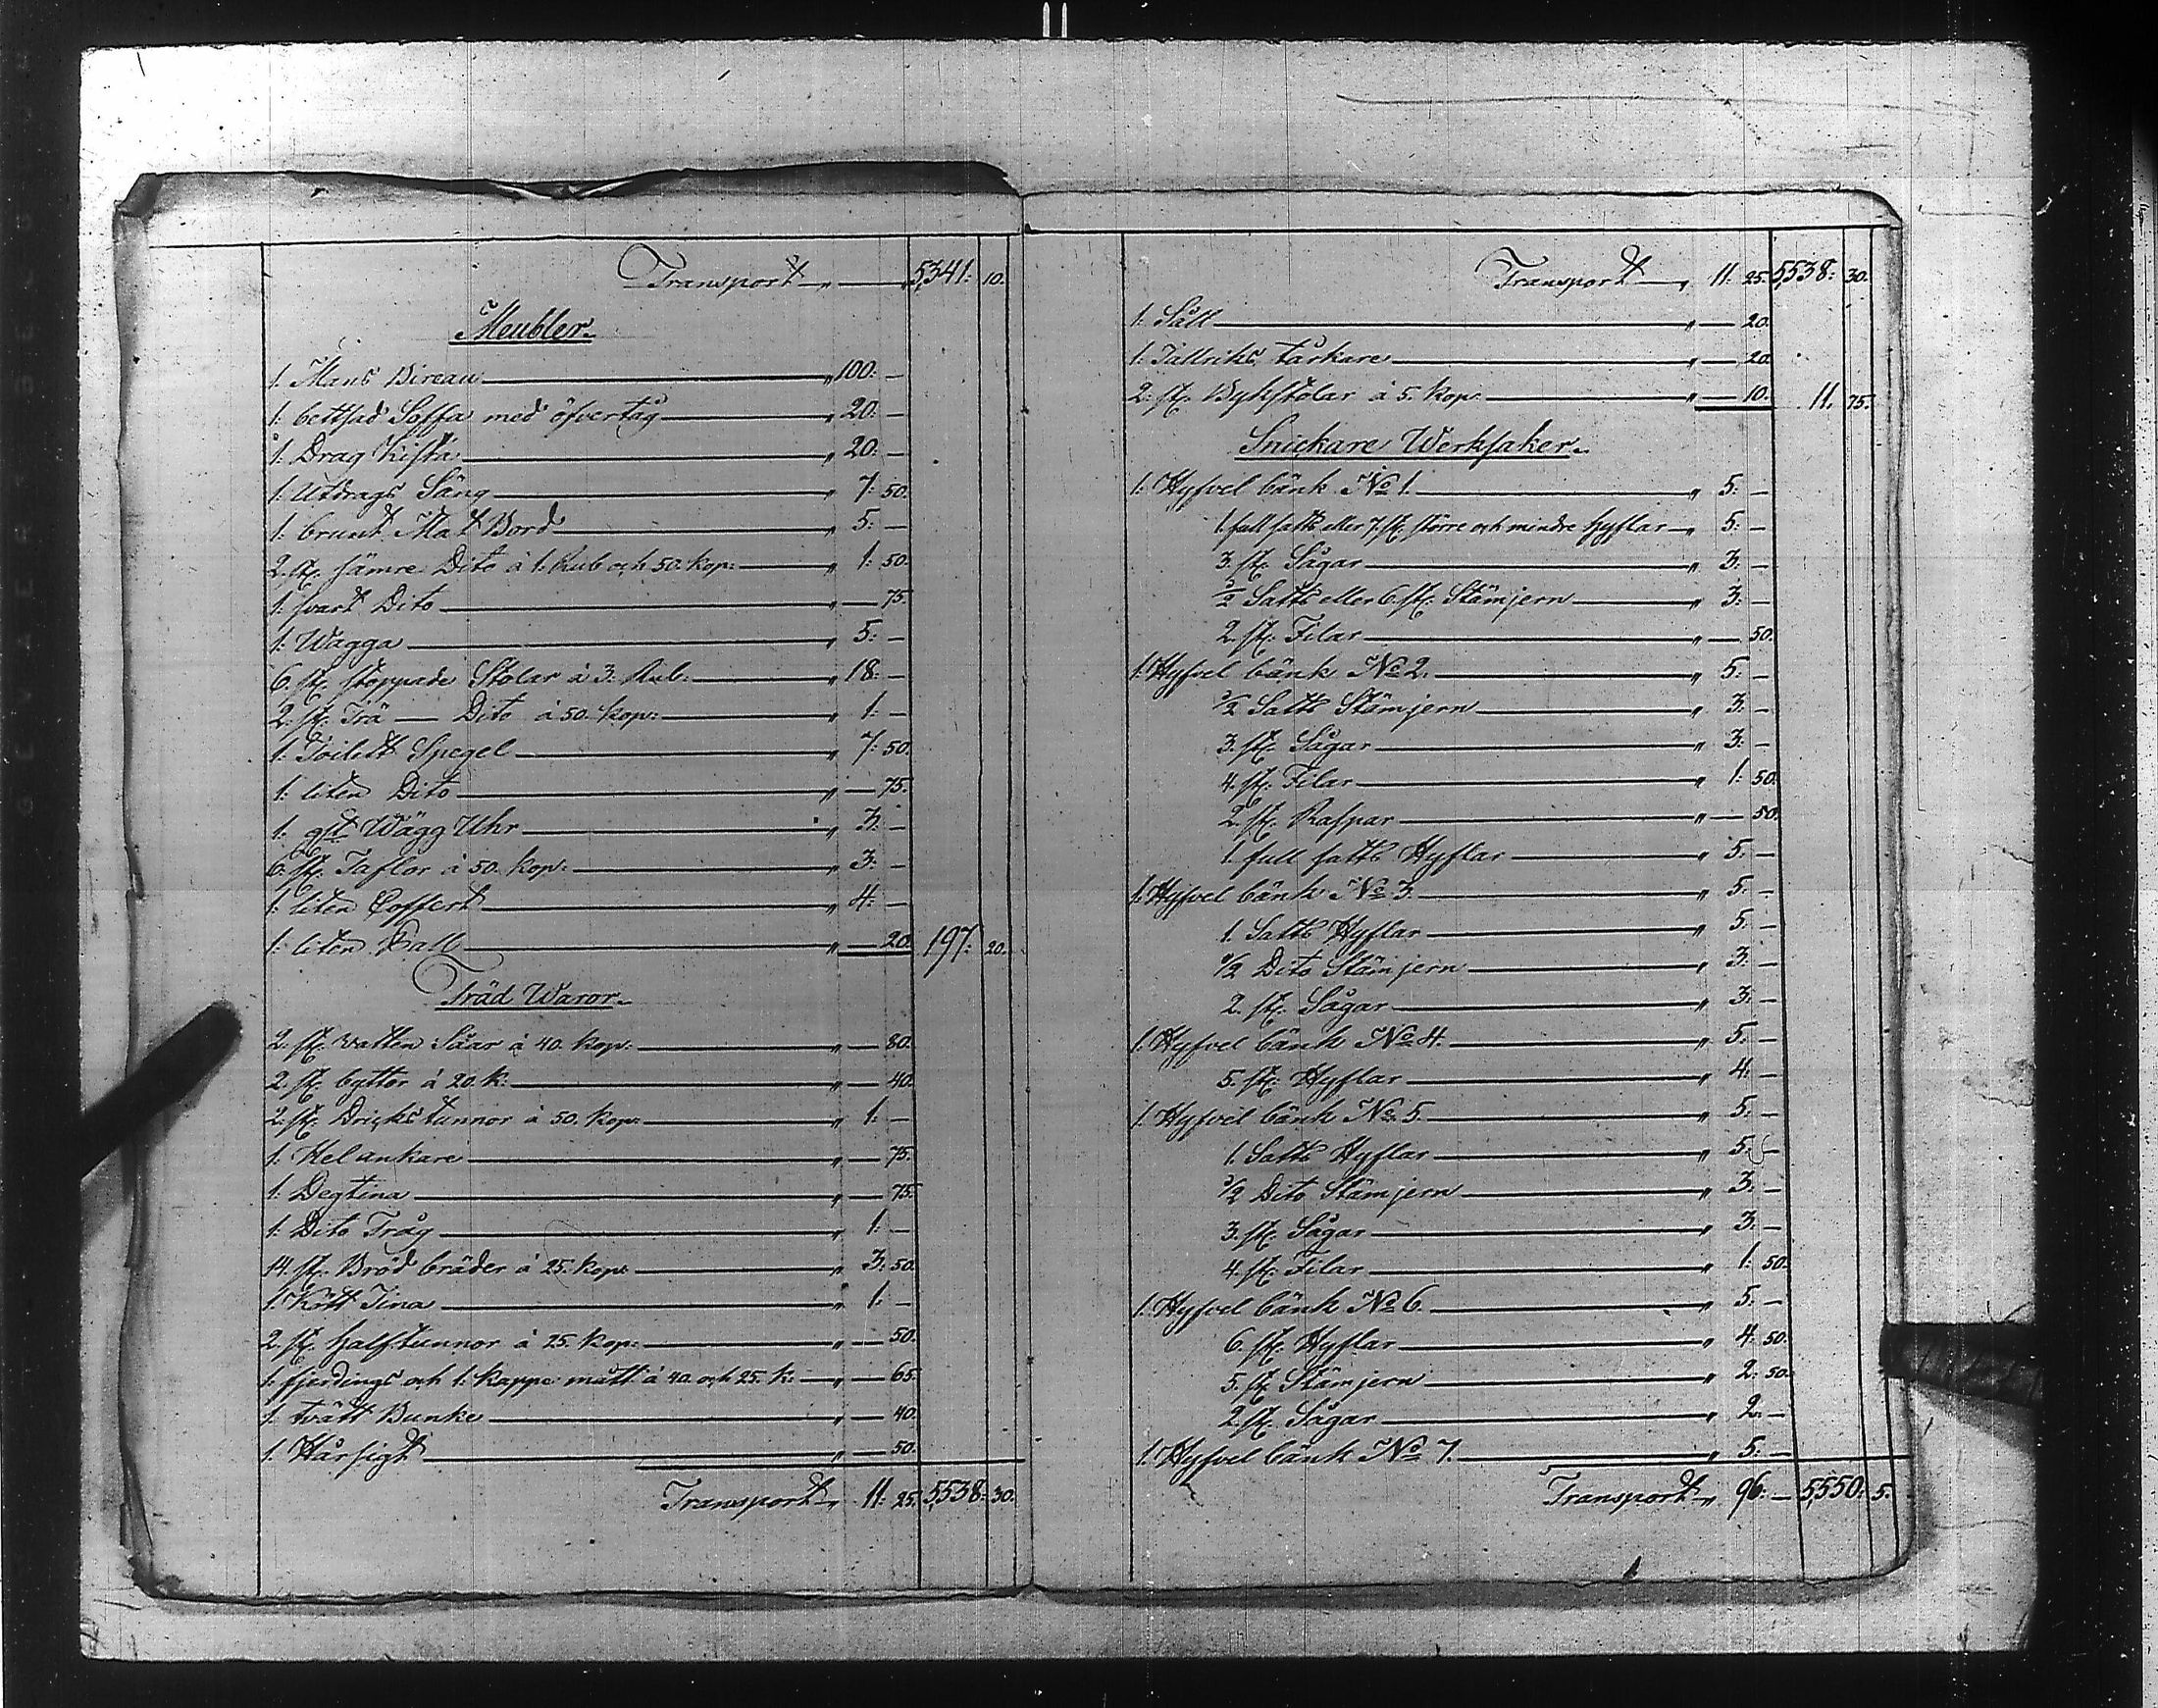 Transport „ — 5,341: 10.
Meubler.
1: Mans Bireau „ 100: —
1: bettsad Soffa med öfvertåg „ 20: —
1: Drag Kista „ 20: —
1: Utdrags Säng „ 7: 50.
1: brunt Mat Bord „ 5: —
2. st. sämre Dito à 1. Rub och 50. kop: „ 1: 50.
1: svart Dito „ — 75.
1: Wagga „ 5: —
6. st. stoppade Stolar à 3. Rub: „ 18: —
2. st. Trä — Dito à 50. kop: „ 1: —
1: Toilett Spegel „ 7: 50.
1: liten Dito „ — 75.
1: glt Wägg Uhr „ 3: —
6. st. Taflor à 50. kop: „ 3: —
1: liten Coffert „ 4: —
1: liten Pall „ — 20. 197: 20.
Träd Waror.
2. st. vatten Såar à 40. kop: „ — 80.
2. st. byttor à 20. k: „ — 40.
2. st. Dricks tunnor à 50. kop: „ 1: —
1: Hel ankare „ — 75.
1: Degtina „ — 75.
1: Dito Tråg „ 1: —
14. st. Bröd bräder à 25. kop: „ 3: 50.
1. Kött Tina „ 1: —
2. st. halftunnor à 25. kop: „ — 50.
1: fjerdings och 1: kappe mått à 40. och 25. k: „ — 65.
1. tvätt Bunke „ — 40.
1. Hårsigt „ — 50.
Transport „ 11: 25. 5,538: 30.
Transport „ 11: 25. 5,538: 30.
1. Såll „ — 20.
1. Tallriks tårkare „ — 20.
2. st. Bykstolar à 5. kop: „ — 10. 11. 75.
Snickare Werksaker.
1: Hyfvel bänk No 1. „ 5: —
1. full satts eller 7. st. större och mindre hyflar „ 5: —
3. st. Sågar „ 3: —
1/2 Satts eller 6. st. Stämjern „ 3: —
2. st. Filar „ — 50.
1. Hyfvel bänk No 2. „ 5: —
1/2 Satts Stämjern „ 3: —
3. st. Sågar „ 3: —
4. st. Filar „ 1: 50.
2. st. Raspar „ — 50.
1. full satts Hyflar „ 5: —
1. Hyfvel bänk No 3. „ 5: —
1. Satts Hyflar „ 5: —
1/2 Dito Stämjern „ 3: —
2. st. Sågar „ 3: —
1. Hyfvel bänk No 4. „ 5: —
5. st. Hyflar „ 4: —
1. Hyfvel bänk No 5. „ 5: —
1. Satts Hyflar „ 5: —
1/2 Dito Stämjern „ 3: —
3. st. Sågar „ 3: —
4. st. Filar „ 1: 50.
1. Hyfvel bänk No 6. „ 5: —
6. st. Hyflar „ 4: 50.
5. st. Stämjern „ 2: 50.
2. st. Sågar „ 2: —
1. Hyfvel bänk No 7. „ 5: —
Transport „ 96: — 5,550: 5.